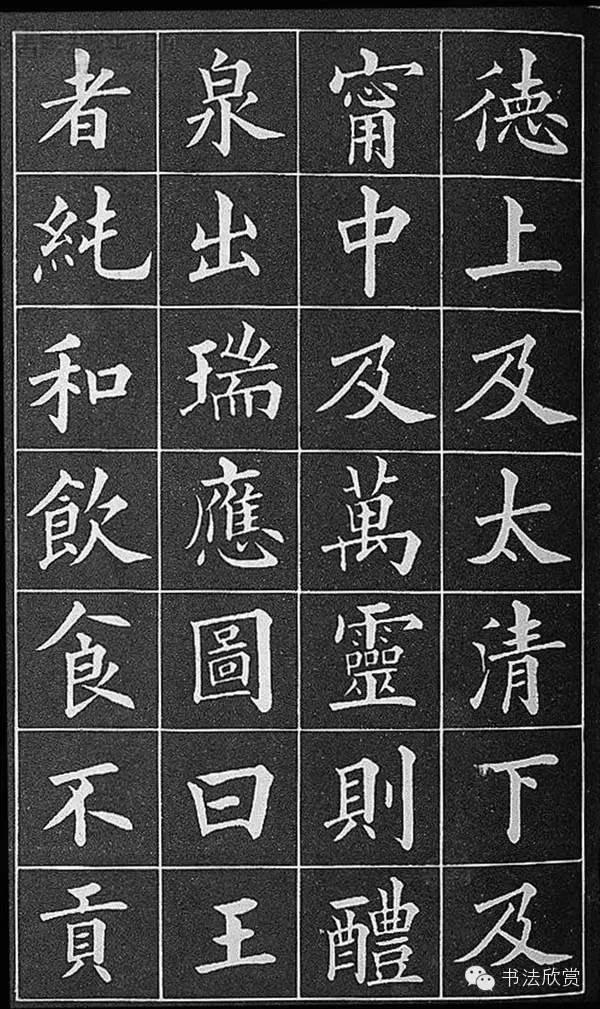 德上及太清下及
甯中及萬靈則醴
泉出瑞應圖曰王
者純和飲食不貢
书法欣赏